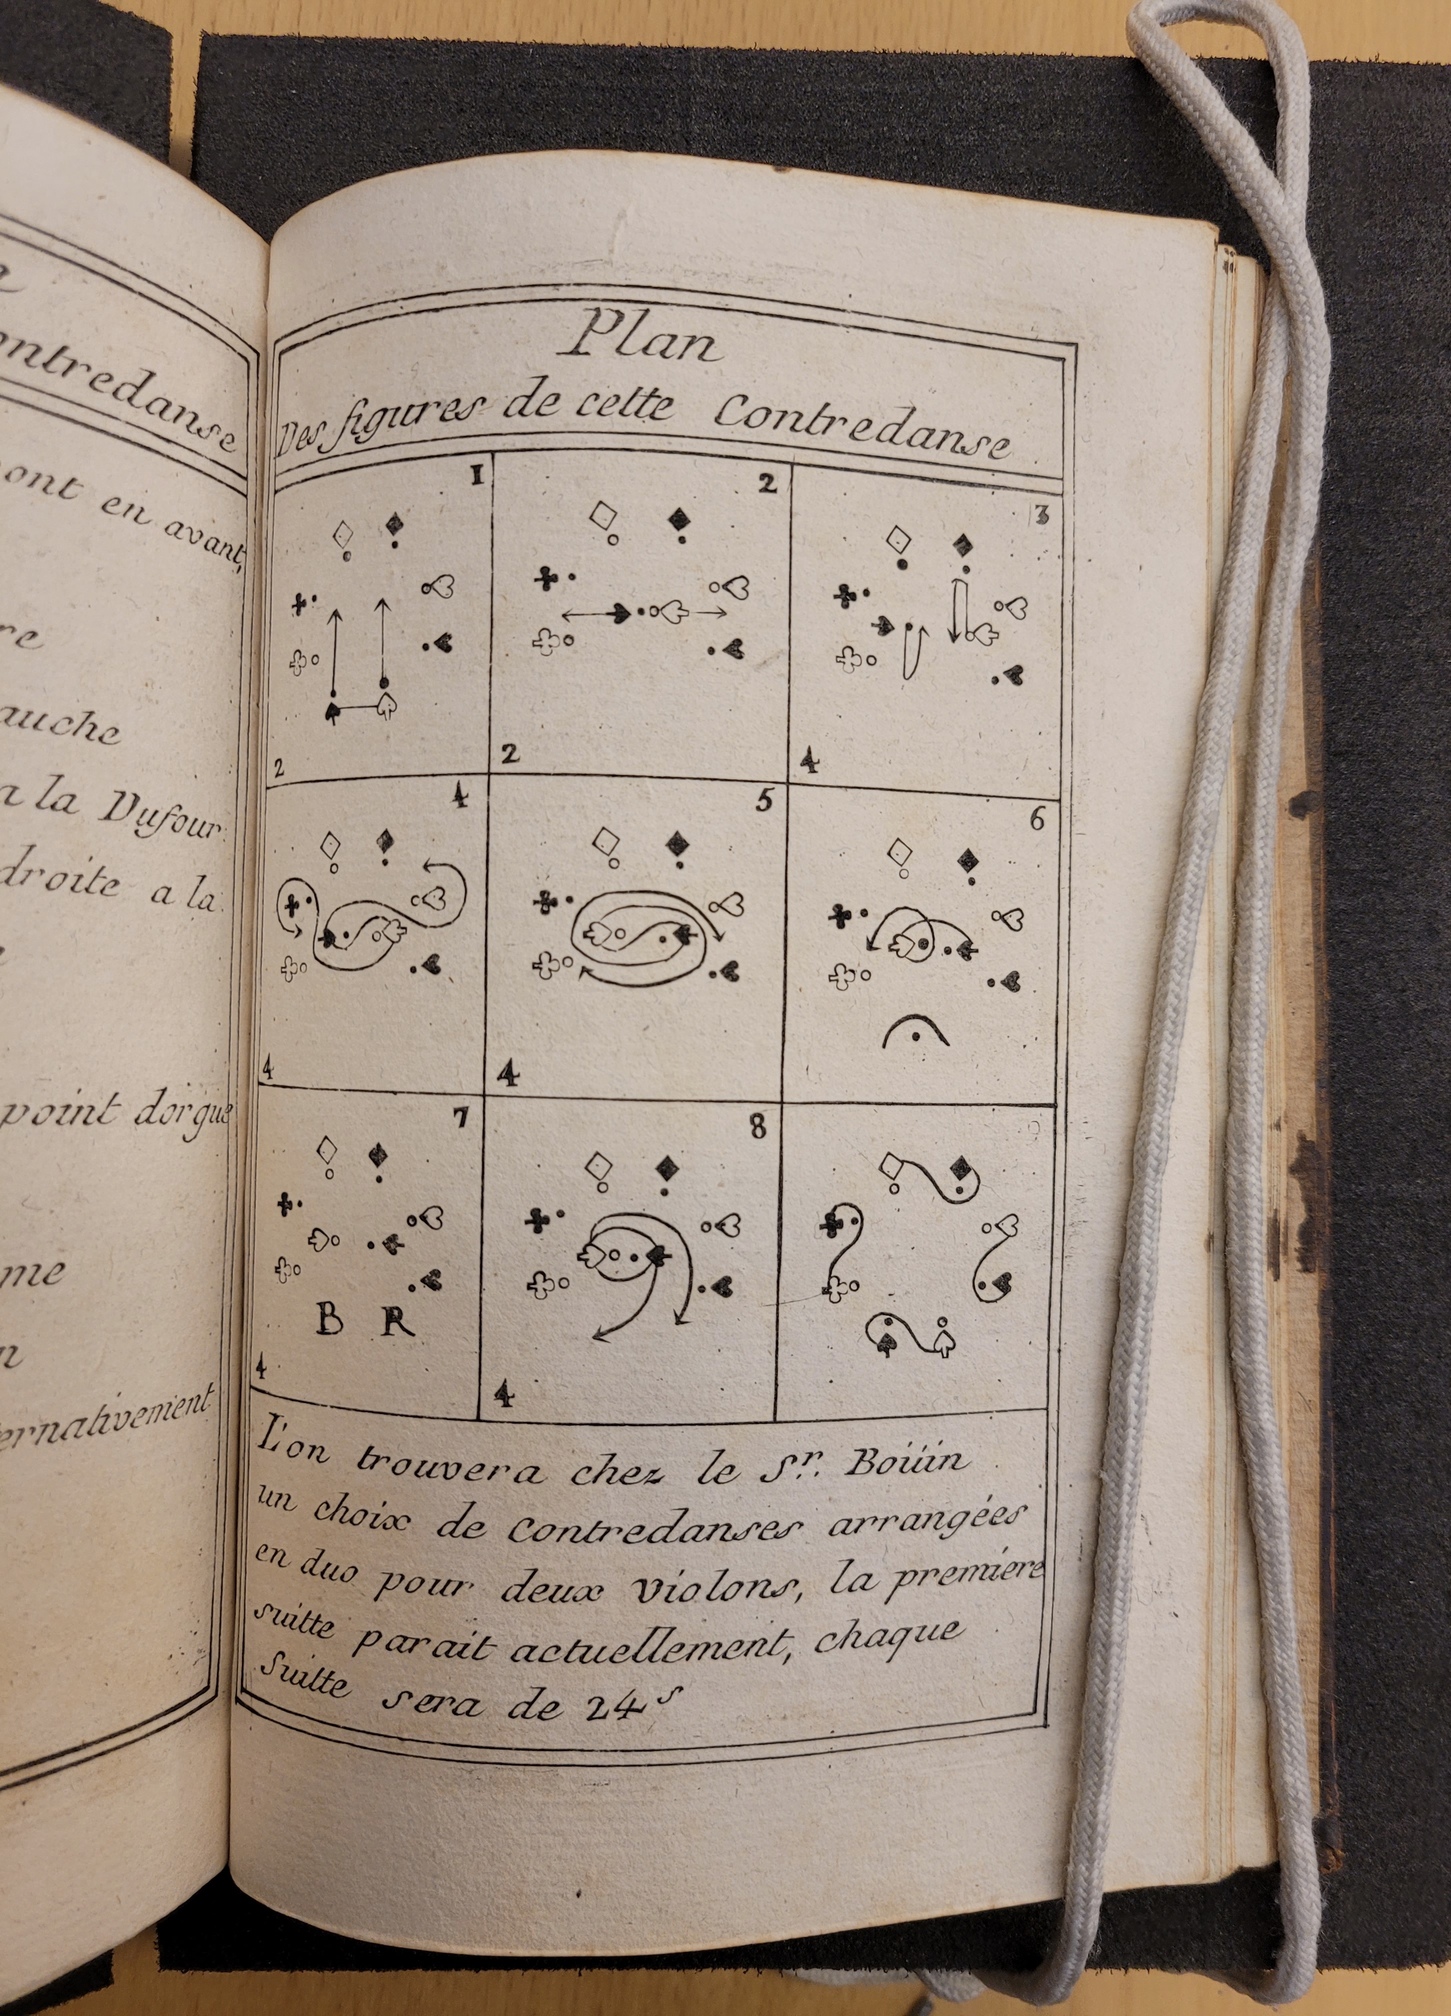 contredanse
ont en avant,
re
auche
a la Dufour
droite a la
point dorgue
me
n
ernativement
Plan
Des figures de cette Contredanse
1
2
2
2
3
4
4
4
5
4
6
7
B R
4
8
4
L'on trouvera chez le Sr. Boüin
un choix de contredanses arrangées
en duo pour deux violons, la premiere
suitte parait actuellement, chaque
Suitte sera de 24 s